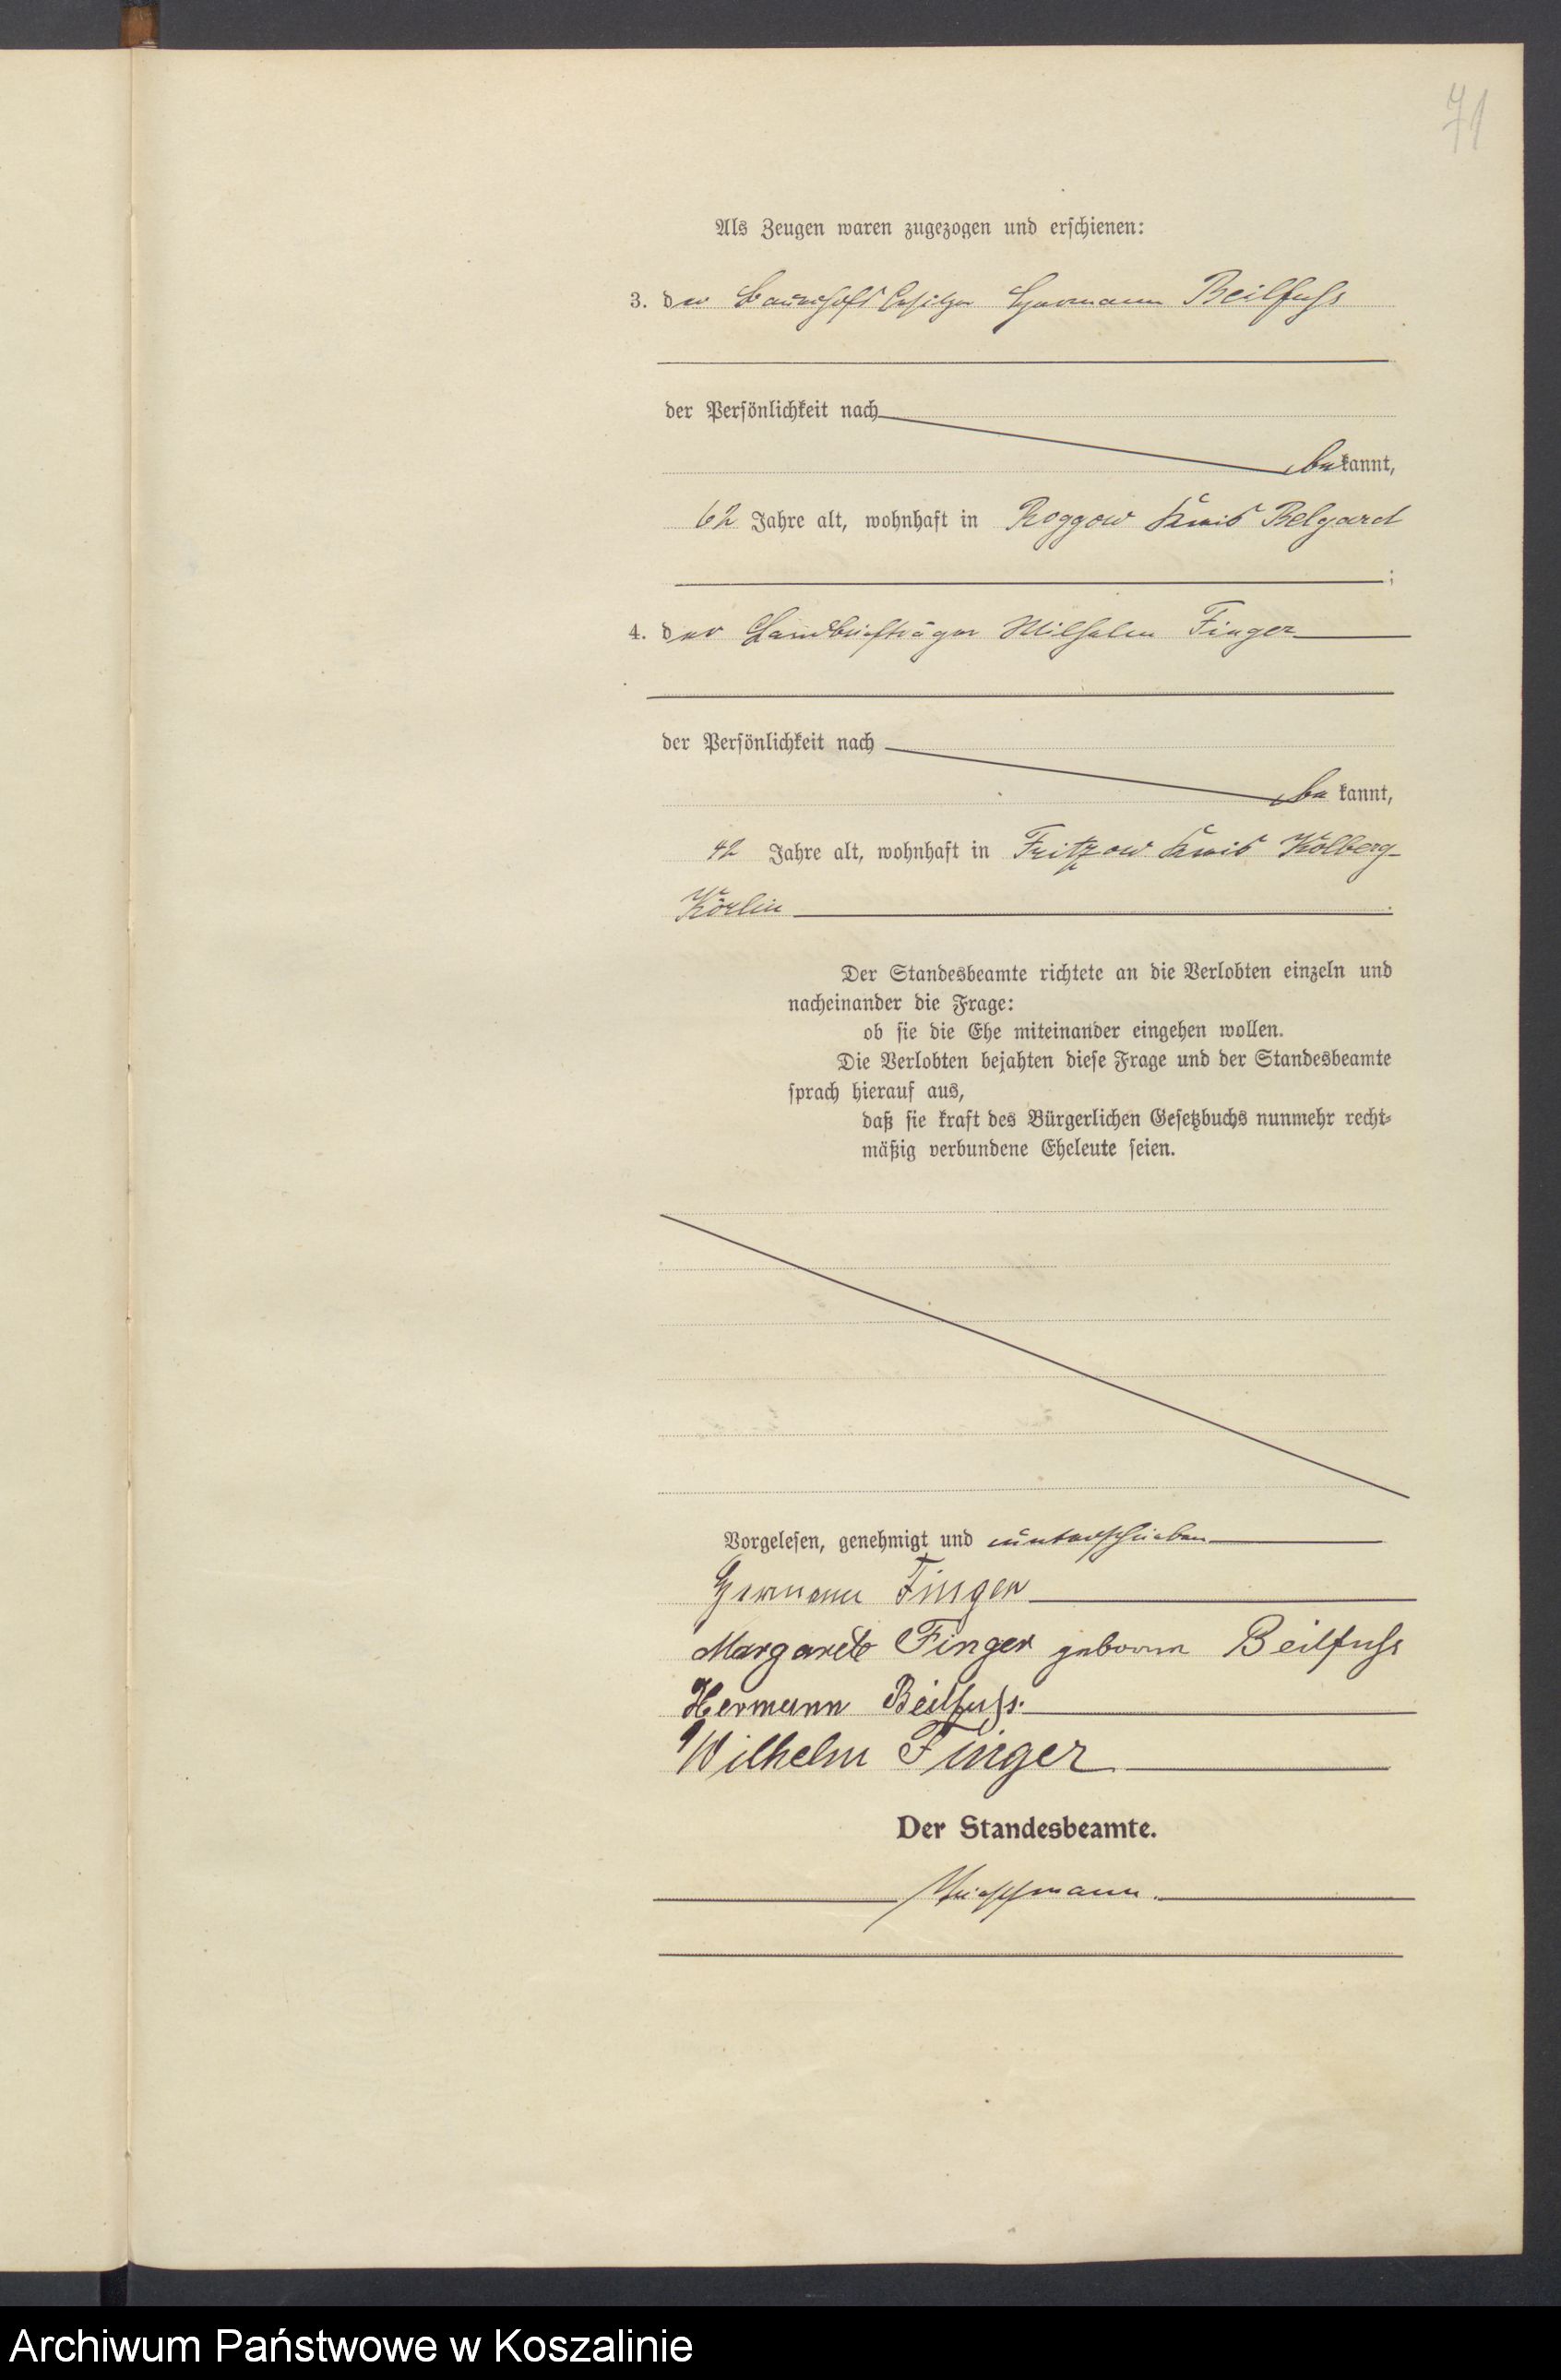 71
Als Zeugen waren zugezogen und erschienen:
3. der Bauerhofsbesitzer Hermann Beilfuß
der Persönlichkeit nach
bekannt,
62 Jahre alt, wohnhaft in Roggow Kreis Belgard
;
4. der Landbriefträger Wilhelm Finger
der Persönlichkeit nach
be kannt,
42 Jahre alt, wohnhaft in Fritzow Kreis Kolberg-
Körlin .
Der Standesbeamte richtete an die Verlobten einzeln und
nacheinander die Frage:
ob sie die Ehe miteinander eingehen wollen.
Die Verlobten bejahten diese Frage und der Standesbeamte
sprach hierauf aus,
daß sie kraft des Bürgerlichen Gesetzbuchs nunmehr recht-
mäßig verbundene Eheleute seien.
Vorgelesen, genehmigt und unterschrieben
Hermann Finger
Margarete Finger geborene Beilfuß
Hermann Beilfuß.
Wilhelm Finger
Der Standesbeamte.
Archiwum Państwowe w Koszalinie